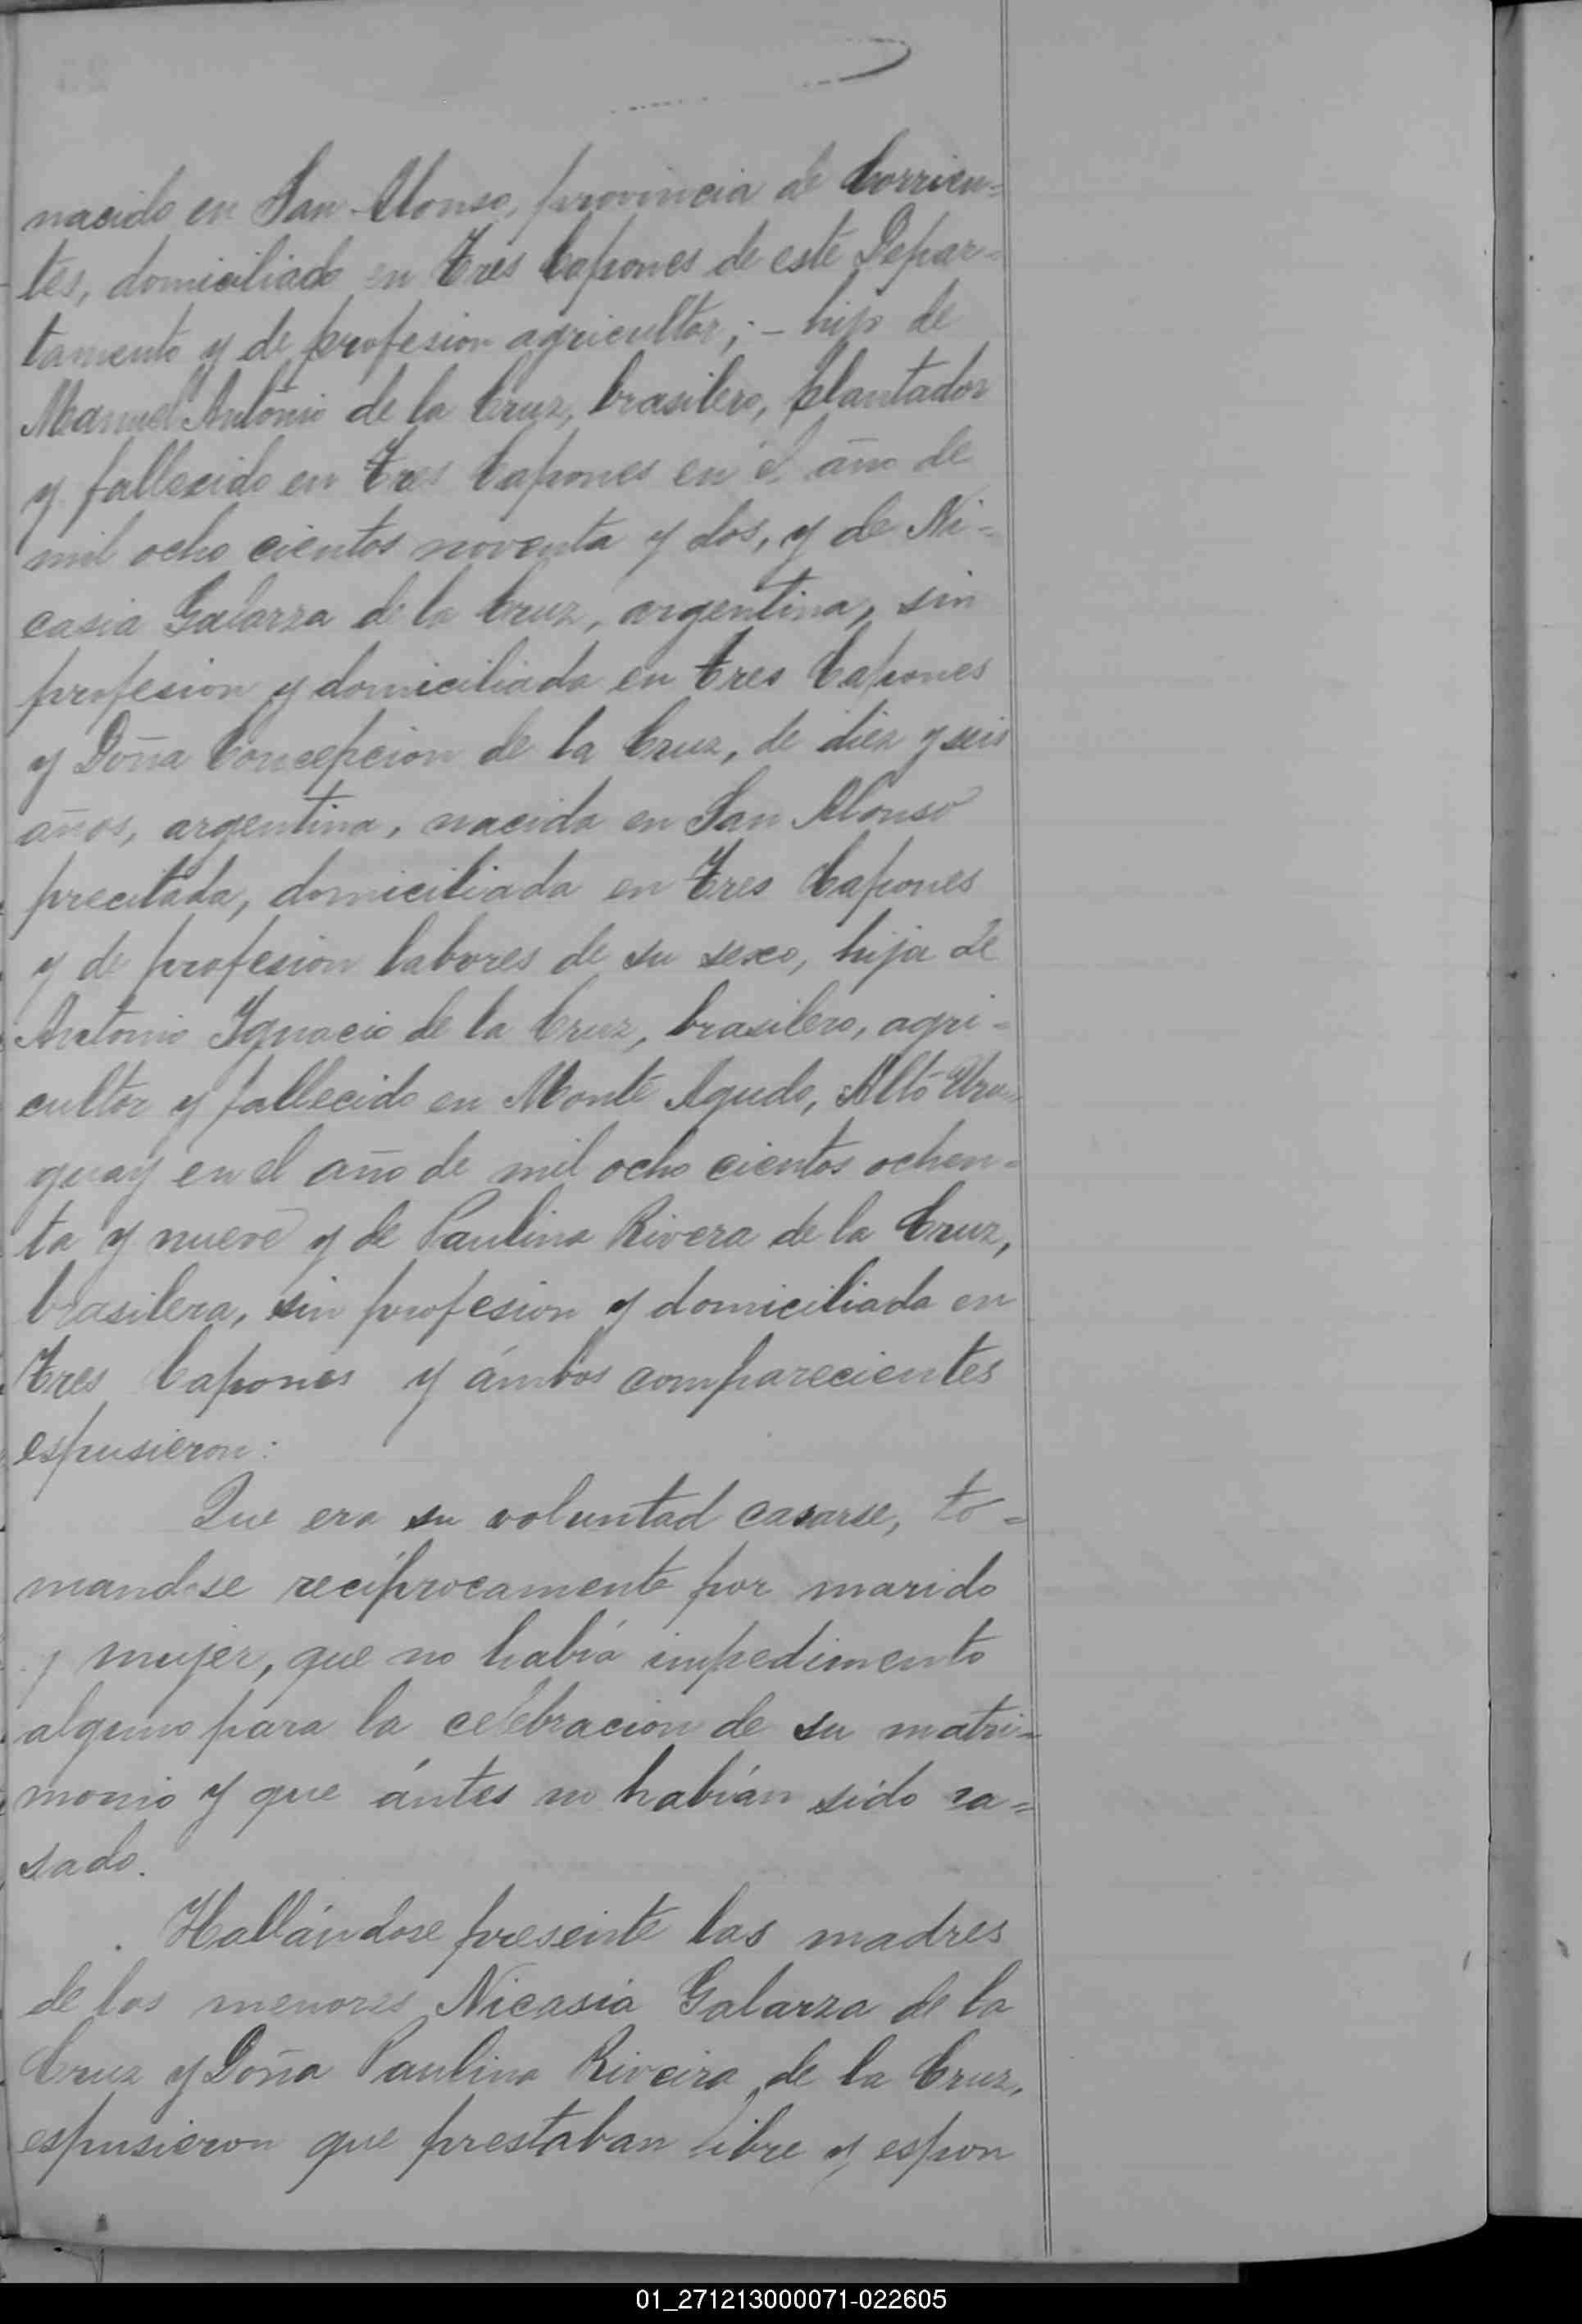 nacido en San Alonso, provincia de Corrien=
tes, domiciliado en Tres Capones de este Depar=
tamento y de profesion agricultor; - hijo de
Manuel Antonio de la Cruz, brasilero, plantador
y fallecido en Tres Capones en el año de
mil ocho cientos noventa y dos, y de Ni=
casia Galarza de la Cruz, argentina, sin
profesion y domiciliada en Tres Capones
y Doña Concepcion de la Cruz, de diez y seis
años, argentina, nacida en San Alonso
precitada, domiciliada en Tres Capones
y de profesion labores de su sexo, hija de
Antonio Ignacio de la Cruz, brasilero, agri=
cultor y fallecido en Monte Agudo, Alto Uru=
guay en el año de mil ocho cientos ochen=
ta y nueve y de Paulina Rivera de la Cruz,
brasilera, sin profesion y domiciliada en
Tres Capones y ámbos comparecientes
espusieron:
Que era su voluntad casarse, to=
mandose recíprocamente por marido
y mujer, que no había impedimento
alguno para la celebracion de su matri=
monio y que ántes no habían sido ca=
sado.
Hallándose presente las madres
de los menores Nicasia Galarza de la
Cruz y Doña Paulina Riveira de la Cruz,
espusieron que prestaban libre y espon
01_271213000071-022605